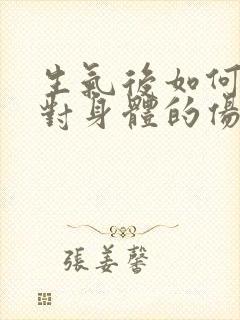 生氣後如何
對身體的傷
張姜馨